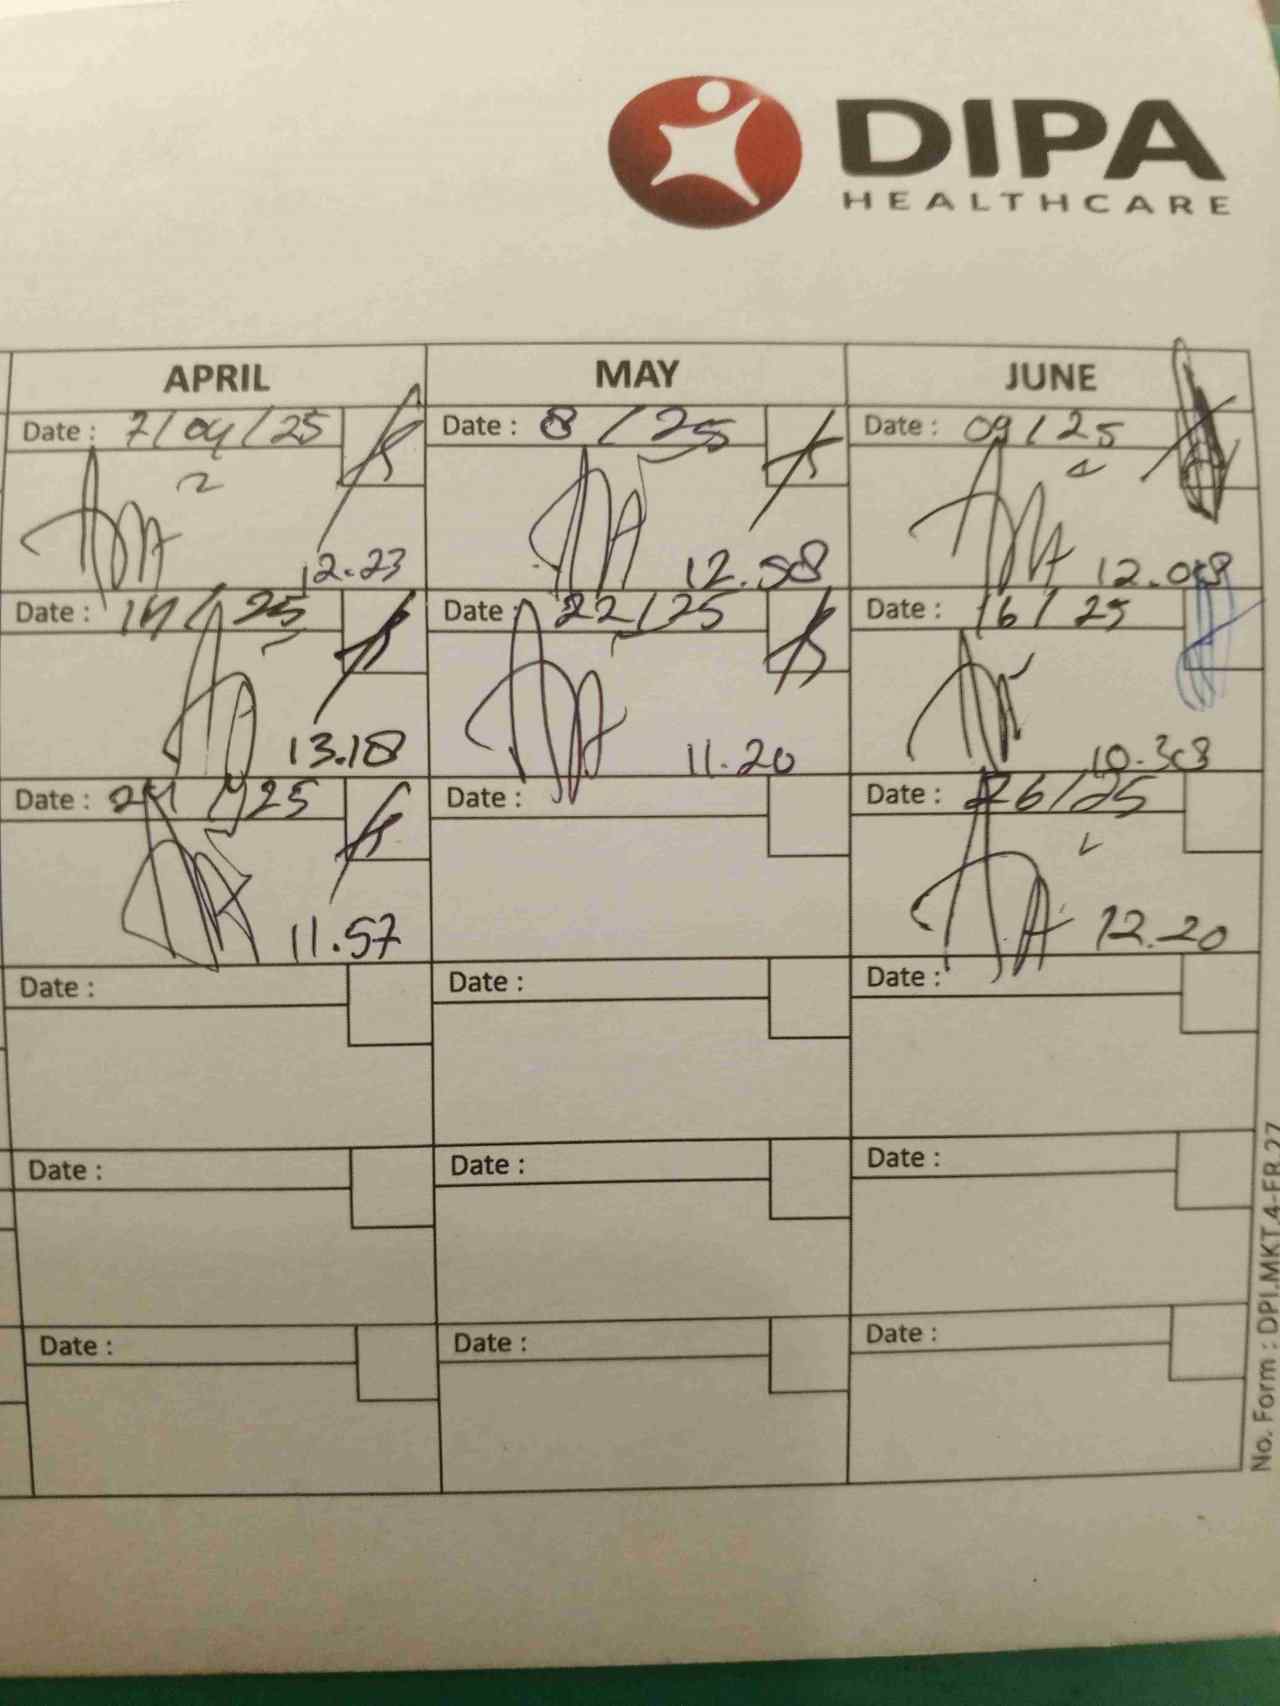 DIPA
HEALTHCARE
APRIL MAY JUNE
Date : 7/04/25 Date : 8 / 25 Date : 09/25
12.23 12.58 12.08
Date : 14 / 25 Date : 22/25 Date : 16 / 25
13.18 11.20 10.38
Date : 24 / 25 Date : Date : 26/25
11.57 12.20
Date : Date : Date :
Date : Date : Date :
Date : Date : Date :
No. Form : DPI.MKT.4-FR.27